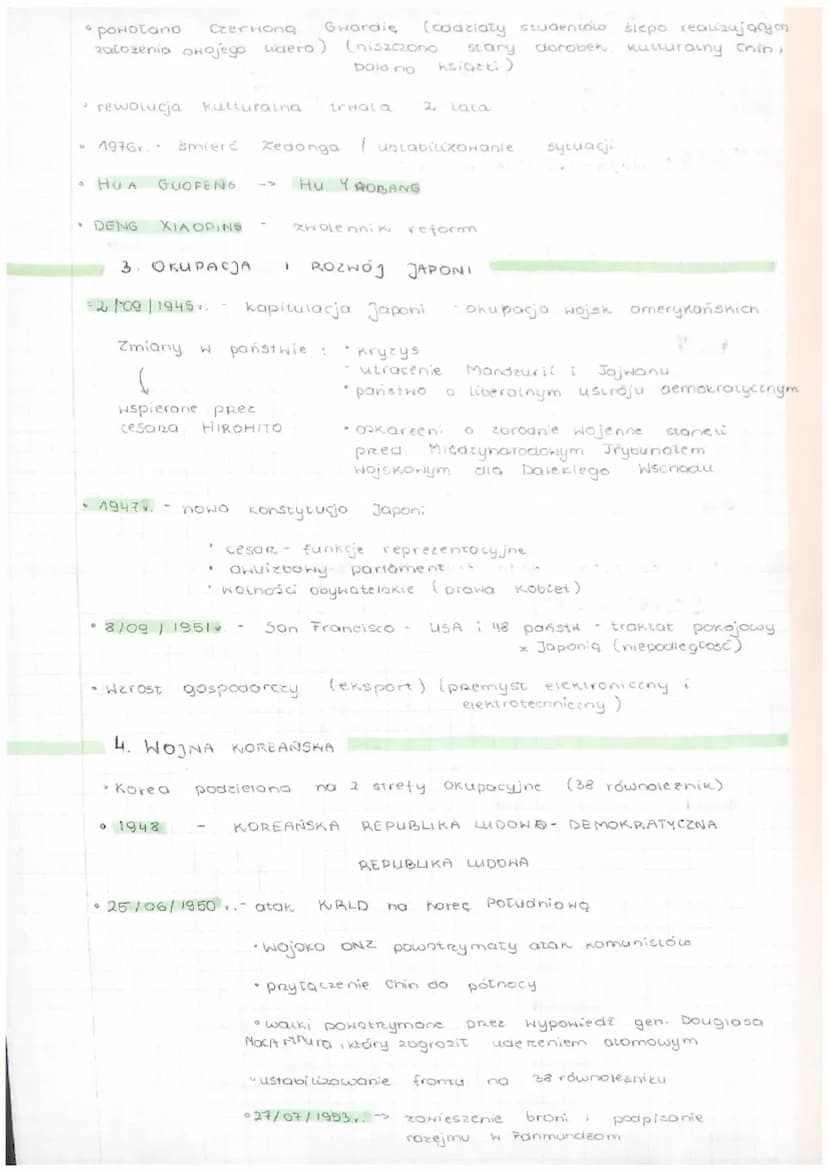 • powołano Czerwoną Gwardię (oddziały studentów ślepo realizujących
założenia swojego lidera) (niszczono stary dorobek kulturalny Chin,
palono książki)
• rewolucja kulturalna trwała 2 lata
• 1976r. - śmierć Zedonga / ustabilizowanie sytuacji
• HUA GUOFENG -> HU YAOBANG
• DENG XIAOPING - zwolennik reform
3. OKUPACJA I ROZWÓJ JAPONI
• 2/09/1945r. - kapitulacja Japoni - okupacja wojsk amerykańskich
Zmiany w państwie : • kryzys
• utracenie Mandżurii i Tajwanu
• państwo o liberalnym ustroju demokratycznym
wspierane przez
cesarza HIROHITO
• oskarżeni o zbrodnie wojenne stanęli
przed Międzynarodowym Trybunałem
Wojskowym dla Dalekiego Wschodu
• 1947r. - nowa konstytucja Japoni
• cesarz - funkcje reprezentacyjne
• dwuizbowy parlament
• wolności obywatelskie (prawa kobiet)
• 8/09/1951r. - San Francisco - USA i 48 państw - traktat pokojowy
z Japonią (niepodległość)
• Wzrost gospodarczy (eksport) (przemysł elektroniczny i
elektrotechniczny)
4. WOJNA KOREAŃSKA
• Korea podzielona na 2 strefy okupacyjne (38 równoleżnik)
• 1948 - KOREAŃSKA REPUBLIKA LUDOWO-DEMOKRATYCZNA
REPUBLIKA LUDOWA
• 25/06/1950r. - atak KRLD na Koreę Południową
• Wojsko ONZ powstrzymały atak komunistów
• przyłączenie Chin do północy
• walki powstrzymane przez wypowiedź gen. Douglasa
MacArthura, który zagroził uderzeniem atomowym
• ustabilizowanie frontu na 38 równoleżniku
• 27/07/1953r. -> zawieszenie broni i podpisanie
rozejmu w Panmundżom